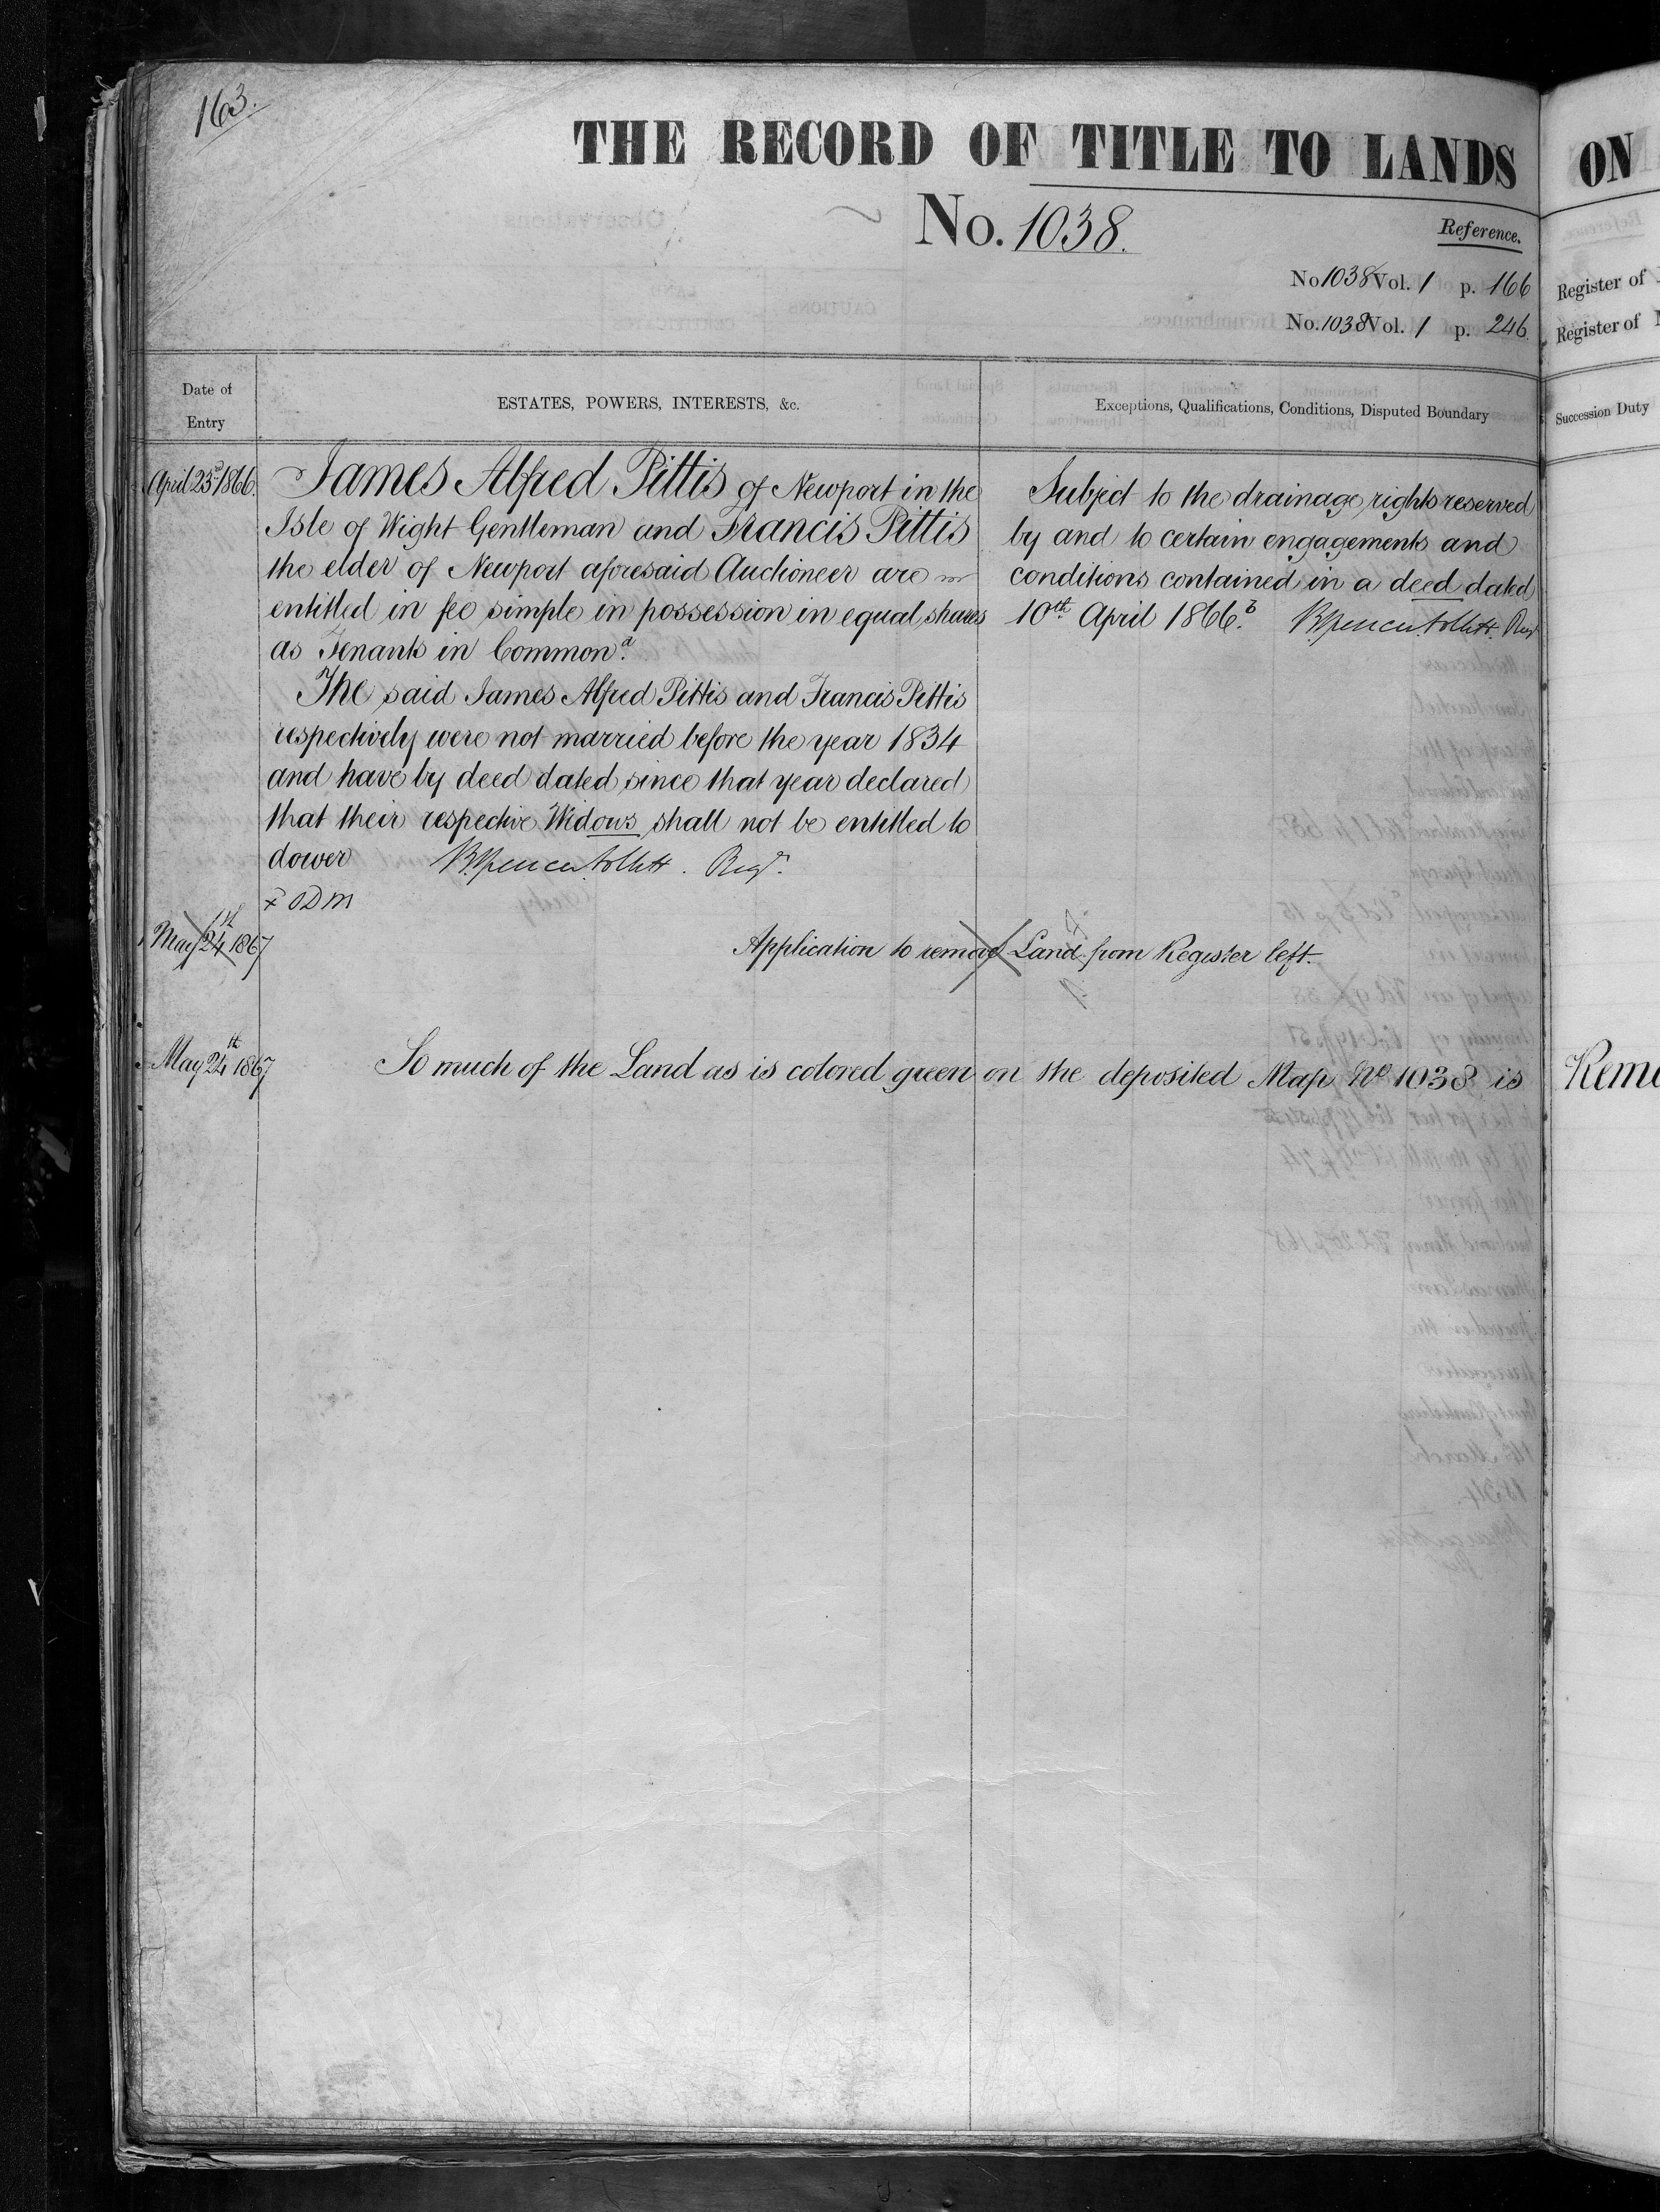 163.
THE RECORD OF TITLE TO LANDS
No. 1038.
Reference.
No 1038 Vol. 1 p. 166
No. 1038 Vol. 1 p. 246.
Date of
Entry
ESTATES, POWERS, INTERESTS, &c.
Exceptions, Qualifications, Conditions, Disputed Boundary
April 25 1866.
James Alfred Pittis of Newport in the
Isle of Wight Gentleman and Francis Pittis
the elder of Newport aforesaid Auctioneer are
entitled in fee simple in possession in equal shares
as Tenants in Common. a
The said James Alfred Pittis and Francis Pittis
respectively were not married before the year 1834
and have by deed dated since that year declared
that their respective Widows shall not be entitled to
dower Regr.
Subject to the drainage rights reserved
by and to certain engagements and
conditions contained in a deed dated
10th. April 1866. b
May 24 1867
1st
Application to remove Land from Register left.
May 24th 1867
So much of the Land as is colored green on the deposited Map No 1038 is
ON
Register of
Register of
Succession Duty